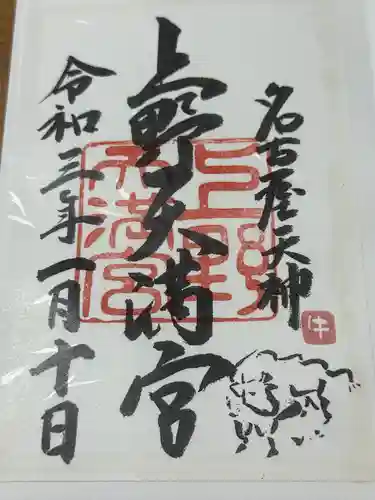 名古屋天神
上野天満宮
令和三年一月十日
上野
天満宮
牛